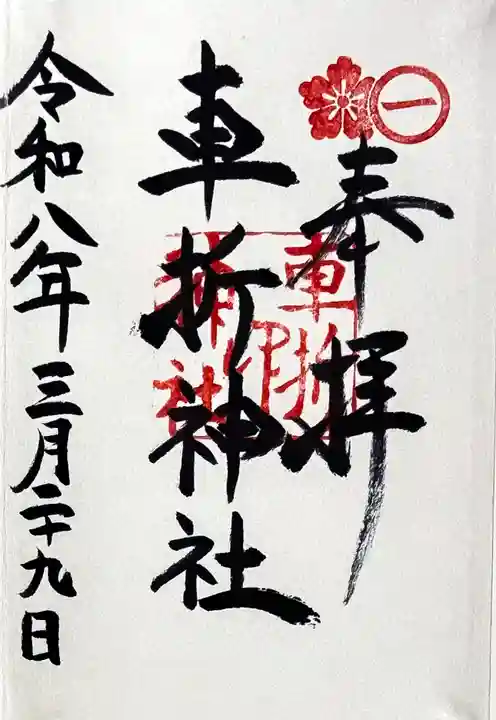 一
奉拝
車折神社
令和八年三月二十九日